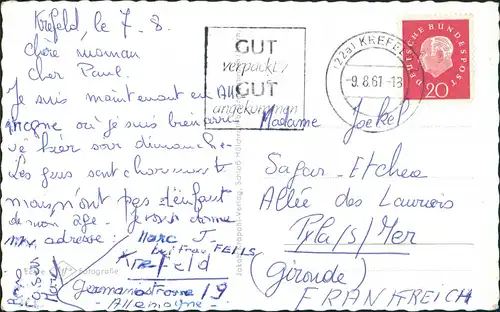 Krefeld, le 7. 8.
chère maman
cher Paul.
Je suis maintenant en Alle
magne où je suis bien arri
vé hier soir dimanche.
Les gens sont charmants
mais n'ont pas d'enfant
de mon age. Je vous donne
mon adresse :
Marc - J.
bei Frau FELLS
Krefeld
Germaniastrasse 19
- Allemagne -
Marc
GUT
verpackt
GUT
angekommen
(22a) KREFELD
-9.8.61-18
DEUTSCHE BUNDESPOST
20
Madame Jeekel
Sagar-Etchea
Allée des Lauriers
Pyla/s/Mer
(Gironde)
FRANKREICH
Fotografie